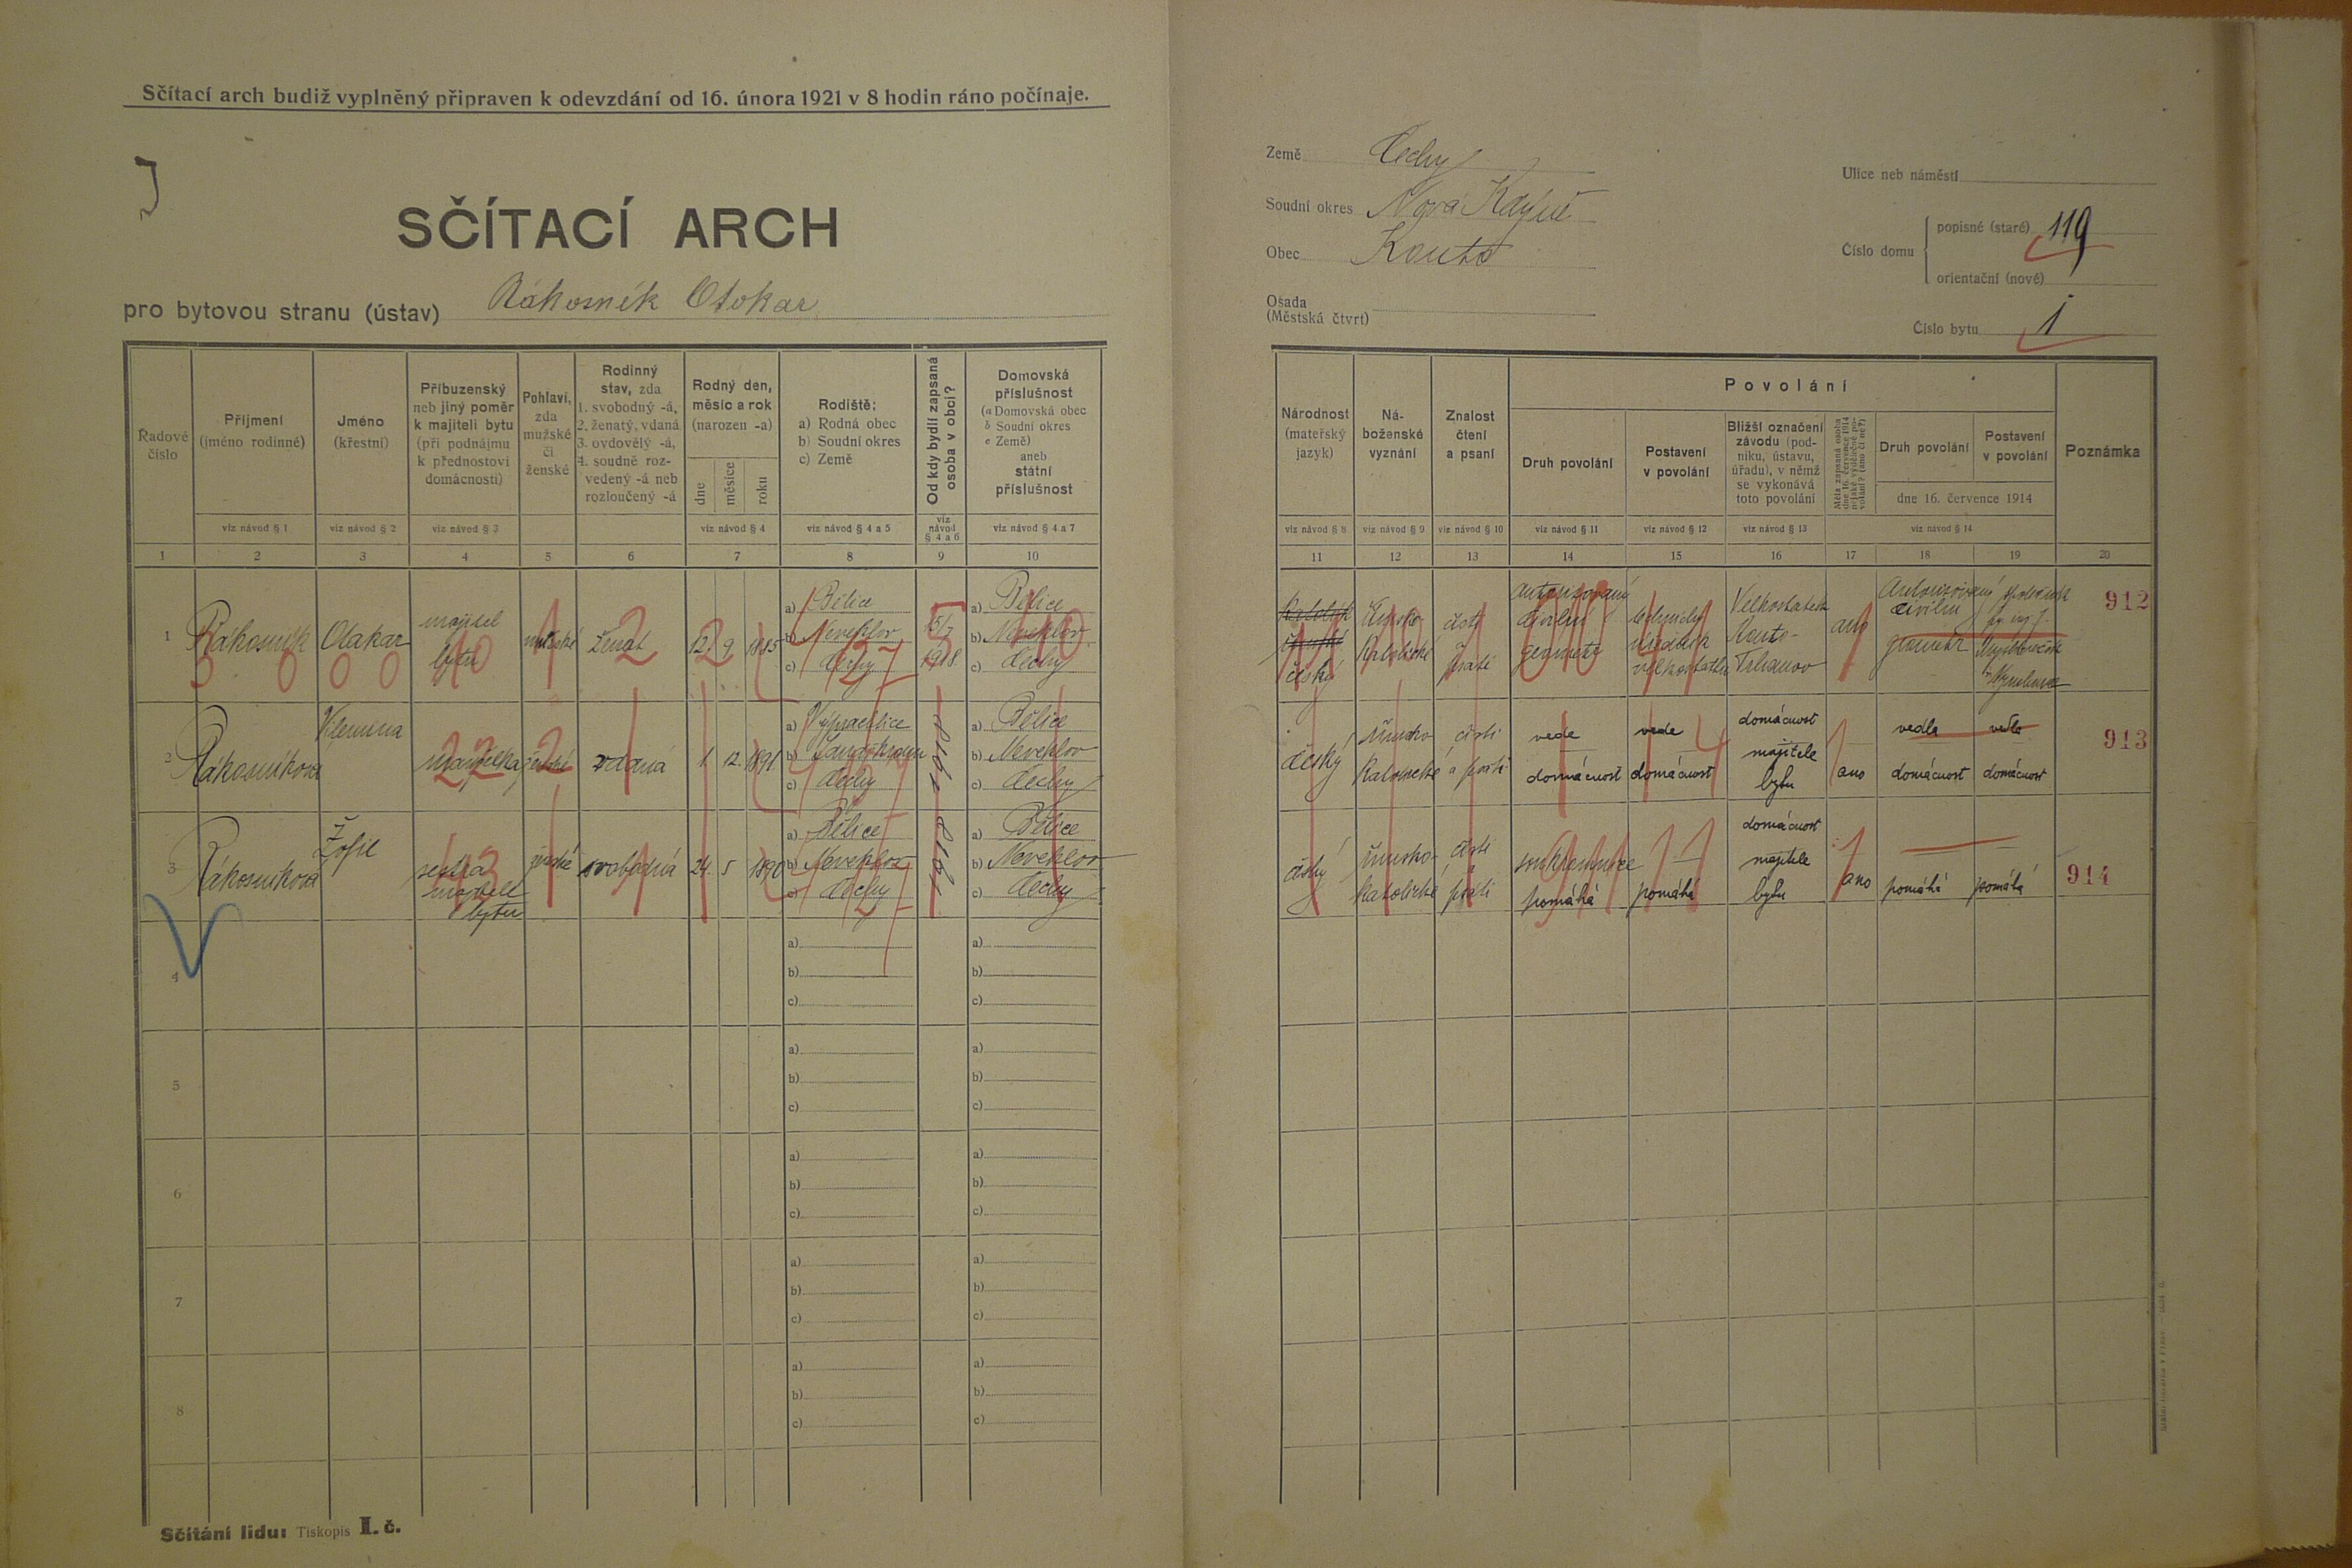 Sčítací arch budiž vyplněný připraven k odevzdání od 16. února 1921 v 8 hodin ráno počínaje.
SČÍTACÍ ARCH
pro bytovou stranu (ústav) Rákosník Otokar
Řadové číslo
Příjmení
(jméno rodinné)
Jméno
(křestní)
Příbuzenský
neb jiný poměr
k majiteli bytu
(při podnájmu
k přednostovi
domácnosti)
Pohlaví,
zda
mužské
či
ženské
Rodinný
stav, zda
1. svobodný -á,
2. ženatý, vdaná
3. ovdovělý -á,
4. soudně roz-
vedený -á neb
rozloučený -á
Rodný den,
měsíc a rok
(narozen -a)
dne
měsíce
roku
Rodiště:
a) Rodná obec
b) Soudní okres
c) Země
Od kdy bydlí zapsaná
osoba v obci?
Domovská
příslušnost
(a Domovská obec
b Soudní okres
c Země)
aneb
státní
příslušnost
viz návod § 1
viz návod § 2
viz návod § 3
viz návod § 4
viz návod § 4 a 5
viz návod § 4 a 6
viz návod § 4 a 7
1 2 3 4 5 6 7 8 9 10
1 Rákosník Otakar majitel bytu mužské ženat 12. 9. 1885
a) Bělice
b) Neveklov
c) Čechy
15/7 1918
a) Bělice
b) Neveklov
c) Čechy
2 Rákosníková Vilemína manželka ženské vdaná 1. 12. 1891
a) Výprachtice
b) Landskroun
c) Čechy
a) Bělice
b) Neveklov
c) Čechy
3 Rákosníková Žofie sestra majitele bytu ženské svobodná 24. 5 1890
a) Bělice
b) Neveklov
c) Čechy
a) Bělice
b) Neveklov
c) Čechy
4
a) a)
b) b)
c) c)
5
a) a)
b) b)
c) c)
6
a) a)
b) b)
c) c)
7
a) a)
b) b)
c) c)
8
a) a)
b) b)
c) c)
Sčítání lidu: Tiskopis I. č.
Země Čechy
Soudní okres Nová Kdýně
Obec Kouto
Osada
(Městská čtvrt)
Ulice neb náměstí
Číslo domu
popisné (staré) 119
orientační (nové)
Číslo bytu 1
Národnost
(mateřský
jazyk)
Ná-
boženské
vyznání
Znalost
čtení
a psaní
Povolání
Druh povolání
Postavení
v povolání
Bližší označení
závodu (pod-
niku, ústavu,
úřadu), v němž
se vykonává
toto povolání
Měla zapsaná osoba
dne 16. července 1914
nějaké výdělečné po-
volání? (ano či ne?)
Druh povolání
Postavení
v povolání
dne 16. července 1914
Poznámka
viz návod § 8
viz návod § 9
viz návod § 10
viz návod § 11
viz návod § 12
viz návod § 13
viz návod § 14
11 12 13 14 15 16 17 18 19 20
český
římsko-
katolické
čísti
psáti
autorisovaný
civilní
geometr
technický
velkostatku
Velkostatek
Kouto-
Trhanov
ano
Autorisovaný
civilní
geometr
912
český
římsko
katolické
čísti
a psáti
vede
domácnost
vede
domácnost
domácnost
majitele
bytu
ano
vedla
domácnost
vedla
domácnost
913
český
římsko-
katolické
čísti
psáti
soukromnice
pomáhá
pomáhá
domácnost
majitele
bytu
ano
pomáhá
pomáhá
914